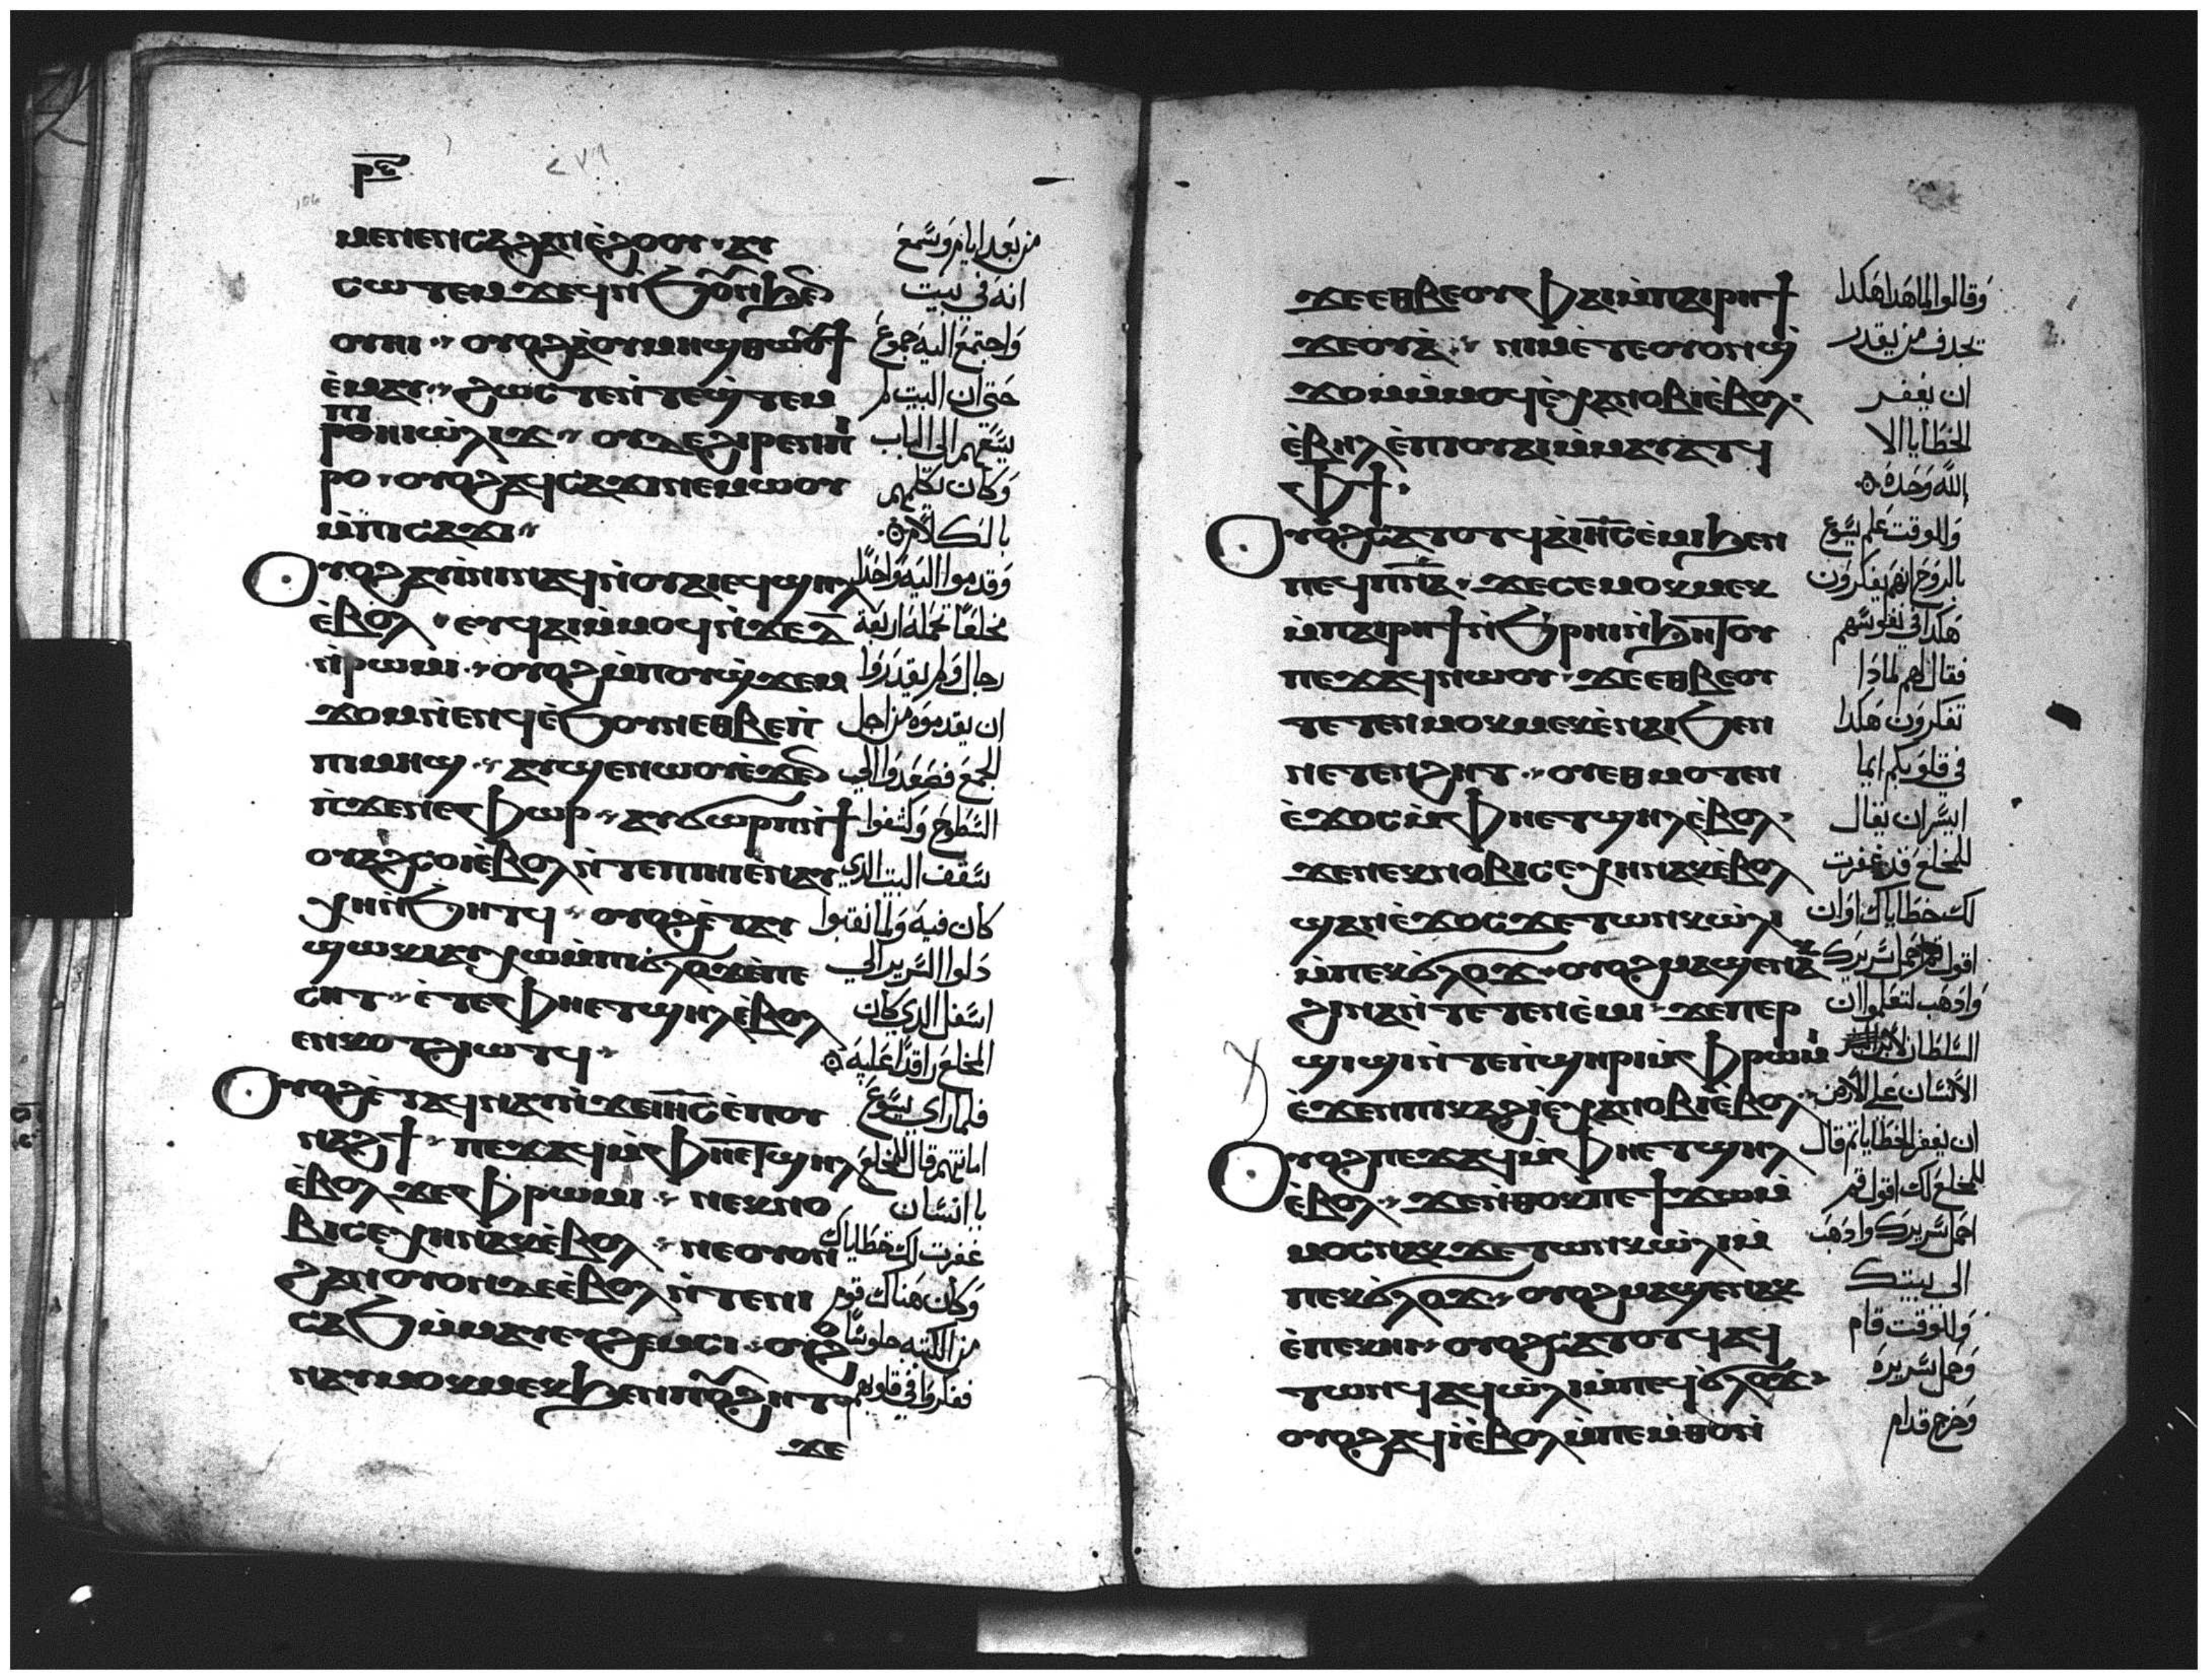 ⲣⲋ
٢٧٩
106
ⲙⲉⲛⲉⲛⲥⲁϩⲁⲛⲉ̀ϩⲟⲟⲩ · ⲁⲩ
ⲥⲱⲧⲉⲙ ϫⲉϥⲛ̀ϧⲟⲩⲛϧⲉⲛ
ⲟⲩⲏⲓ ·· ⲟⲩⲟϩⲁ̀ⲟⲩⲙⲏϣⲑⲱⲟⲩϯ
ⲉ̀ⲙⲁⲩ ·· ϩⲱⲥⲧⲉⲛ̀ⲧⲉϣ̀ⲧⲉⲙ
ⲡⲓ
ⲣⲟⲏⲓⲱ̀ⲗⲓϫ ·· ⲟⲩⲇⲉϩⲓⲣⲉⲛⲡⲓ
ⲣⲟ · ⲟⲩⲟϩⲁϥⲥⲁϫⲓⲛⲉⲙⲱⲟⲩ
ⲙ̀ⲡⲓⲥⲁϫⲓ ··
ⲟⲩⲟϩⲁⲩⲓ̀ⲛⲓⲛⲁϥⲛ̀ⲟⲩⲁⲓⲉϥϣⲏⲗ
ⲉ̀ⲃⲟⲗ · ⲉⲩϥⲁⲓⲙ̀ⲙⲟϥⲛ̀ϫⲉⲇ̅
ⲛ̀ⲣⲱⲙⲓ ·· ⲟⲩⲟϩⲙ̀ⲡⲟⲩϣ̀ϫⲉⲙ
ϫⲟⲙⲛ̀ⲉⲛϥⲉ̀ϧⲟⲩⲛⲉⲑⲃⲉⲡⲓ
ⲡⲓⲙⲏϣ ·· ⲁⲩϣⲉⲛⲱⲟⲩⲉ̀ϫⲉⲛ
ⲛ̀ϫⲉⲛⲉⲫⲱⲣ ·· ⲁⲩϭⲱⲣⲡⲛ̀ϯ
ⲟⲩⲁϩⲥⲟⲓⲉ̀ⲃⲟⲗ ⲛ̀ⲧⲉⲡⲓⲏⲓⲉ̀ⲛⲁⲩ
ⲭⲏⲛ̀ϧⲏⲧϥ ·· ⲟⲩⲟϩⲉ̀ⲧⲁⲩ
ϣⲱⲕⲓⲁⲩⲭⲱⲙ̀ⲡⲓϭⲗⲟϫⲉ̀ⲡⲉ
ⲥⲏⲧ ·· ⲉ̀ⲧⲉⲫⲏⲉⲧϣⲏⲗⲉ̀ⲃⲟⲗ
ⲉⲛⲕⲟⲧϩⲓⲱⲧϥ ··
ⲟⲩⲟϩⲉ̀ⲧⲁϥⲛⲁⲩⲛ̀ϫⲉⲓⲏ̅ⲥ̅ⲉ̀ⲡⲟⲩ
ⲛⲁϩϯ ·· ⲡⲉϫⲁϥⲙ̀ⲫⲏⲉⲧϣⲏⲗ
ⲉ̀ⲃⲟⲗ ϫⲉⲫⲣⲱⲙⲓ ·· ⲛⲉⲕⲛⲟ
ⲃⲓⲥⲉⲭⲏⲛⲁⲕⲉ̀ⲃⲟⲗ ·· ⲛⲉⲟⲩⲟⲛ
ϩⲁⲛⲟⲩⲟⲛⲇⲉⲉ̀ⲃⲟⲗ ⲛ̀ⲧⲉⲛⲓ
ⲥⲁϧⲙ̀ⲙⲁⲩⲉⲩϩⲉⲙⲥⲓ ·· ⲟⲩⲟϩ
ⲛⲁⲩⲙⲟⲕⲙⲉⲕϧⲉⲛⲡⲟⲩϩⲏⲧ ··
ϫⲉ
من بعد ايام وسمع
انه في بيت
واجتمع اليه جموع
حتي ان البيت لم
يسعهم الي الباب
وكان يكلمهم
بالكلام
وقدموا اليه واحدا
مخلعا تحمله اربعة
رجال ولم يقدروا
ان يقدموه من اجل
الجمع فصعدوا الي
السطوح وكشفوا
سقف البيت الذي
كان فيه ولما نقبوا
دلوا السرير الي
اسفل الذي كان
المخلع راقدا عليه
فلما راى يسوع
امانتهم قال للمخلع
يا انسان
غفرت لك خطاياك
وكان هناك قوم
من الكتبه جلوسا
ففكروا في قلوبهم
ϫⲉⲉⲑⲃⲉⲟⲩⲫⲁⲓⲙ̀ⲡⲁⲓⲣⲏϯ
ϫⲉⲟⲩⲁ̀ ·· ⲛⲓⲙⲉ̀ⲧⲉⲟⲩⲟⲛϣ̀
ϫⲟⲙⲙ̀ⲙⲟϥⲉ̀ⲭⲁⲛⲟⲃⲓⲉ̀ⲃⲟⲗ ·
ⲉ̀ⲃⲏⲗⲉ̀ⲡⲟⲩⲁⲓⲙ̀ⲙⲁⲩⲁⲧϥ
ⲫϯ ·
ⲟⲩⲟϩⲥⲁⲧⲟⲧϥⲁ̀ⲓⲏ̅ⲥ̅ⲉ̀ⲙⲓϧⲉⲛ
ⲡⲉϥⲡ̅ⲛ̅ⲁ̅ · ϫⲉⲥⲉⲙⲟⲕⲙⲉⲕ
ⲙ̀ⲡⲁⲓⲣⲏϯⲛ̀ϧⲣⲏⲓⲛ̀ϧⲏⲧⲟⲩ
ⲡⲉϫⲁϥⲛⲱⲟⲩ ·· ϫⲉⲉⲑⲃⲉⲟⲩ
ⲧⲉⲧⲉⲛⲙⲟⲕⲙⲉⲕⲉ̀ⲛⲁⲓϧⲉⲛ
ⲛⲉⲧⲉⲛϩⲏⲧ ·· ⲟⲩⲉⲑⲙⲟⲧⲉⲛ
ⲉ̀ϫⲟⲥⲙ̀ⲫⲏⲉⲧϣⲏⲗⲉ̀ⲃⲟⲗ ·
ϫⲉⲛⲉⲕⲛⲟⲃⲓⲥⲉⲭⲏⲛⲁⲕⲉ̀ⲃⲟⲗ
ϣⲁⲛⲉ̀ϫⲟⲥϫⲉⲧⲱⲛⲕⲱ̀ⲗⲓ
ⲙ̀ⲡⲉⲕϭⲗⲟϫ ·· ⲟⲩⲟϩⲙⲁϣⲉⲛⲁⲕ
ϩⲓⲛⲁⲛ̀ⲧⲉⲧⲉⲛⲉ̀ⲙⲓ ·· ϫⲉⲡⲉⲣ
ϣⲓϣⲓⲛ̀ⲧⲉⲡ̀ϣⲏⲣⲓⲙ̀ⲫⲣⲱⲙⲓ
ⲉ̀ϫⲉⲛⲡⲓⲕⲁϩⲓⲉ̀ⲭⲁⲛⲟⲃⲓⲉ̀ⲃⲟⲗ ··
ⲟⲩⲟϩⲡⲉϫⲁϥⲙ̀ⲫⲏⲉⲧϣⲏⲗ
ⲉ̀ⲃⲟⲗ ·· ϫⲉⲛ̀ⲑⲟⲕⲡⲉϯϫⲱⲙ̀
ⲙⲟⲥⲛⲁⲕϫⲉⲧⲱⲛⲕⲱ̀ⲗⲓⲙ̀
ⲡⲉⲕϭⲗⲟϫ ·· ⲟⲩⲟϩⲙⲁϣⲉⲛⲁⲕ
ⲉ̀ⲡⲉⲕⲏⲓ ·· ⲟⲩⲟϩⲥⲁⲧⲟⲧϥⲁϥ
ⲧⲱⲛϥⲁϥⲱ̀ⲗⲓⲙ̀ⲡⲉϥϭⲗⲟϫ ··
ⲟⲩⲟϩⲁϥⲓ̀ⲉ̀ⲃⲟⲗⲙ̀ⲡⲉⲙ̀ⲑⲟⲛ̀
وقالوا لماهدا هكدا
يجدف من يقدر
ان يغفر
الخطايا الا
الله وحده
وللوقت علم يسوع
بالروح انهم يفكرون
هكدا في نفوسهم
فقال لهم لمادا
تفكرون هكدا
في قلوبكم ايما
ايسر ان يقال
للمخلع قد غفرت
لك خطاياك اوان
اقول قم احمل سريرك
وادهب لتعلموا ان
السلطان لابن
الانسان علي الارض
ان يغفر الخطايا ثم قال
للمخلع لك اقول قم
احمل سريرك وادهب
الى بيتك
وللوقت قام
وحمل سريره
وخرج قدام